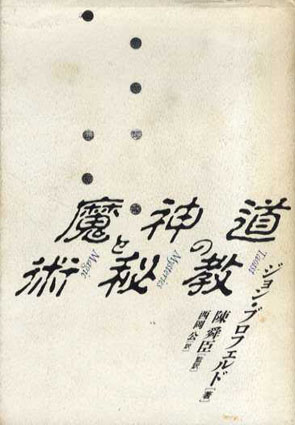 道教の神秘と魔術
Taoist
Mysteries
Magic
ジョン・ブロフェルド[著]
陳舜臣[監訳]
西岡公[訳]